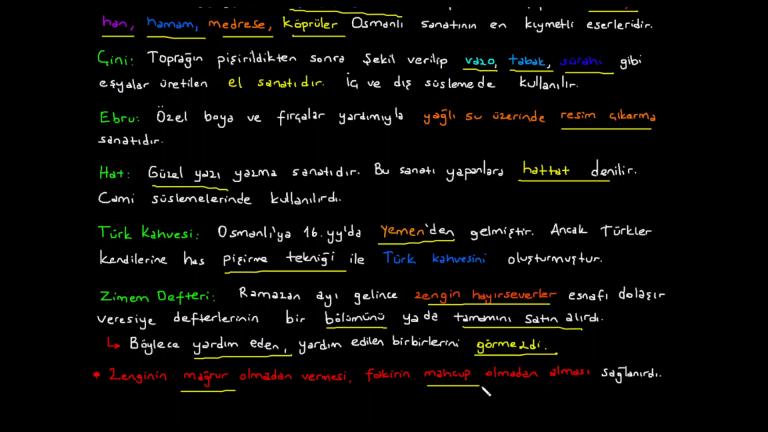 han, hamam, medrese, köprüler Osmanlı sanatının en kıymetli eserleridir.
Çini: Toprağın pişirildikten sonra şekil verilip vazo, tabak, sürahi gibi
eşyalar üretilen el sanatıdır. İç ve dış süslemede kullanılır.
Ebru: Özel boya ve fırçalar yardımıyla yağlı su üzerinde resim çıkarma
sanatıdır.
Hat: Güzel yazı yazma sanatıdır. Bu sanatı yapanlara hattat denilir.
Cami süslemelerinde kullanılırdı.
Türk Kahvesi: Osmanlı'ya 16.yy'da Yemen'den gelmiştir. Ancak Türkler
kendilerine has pişirme tekniği ile Türk kahvesini oluşturmuştur.
Zimem Defteri: Ramazan ayı gelince zengin hayırseverler esnafı dolaşır
veresiye defterlerinin bir bölümünü ya da tamamını satın alırdı.
↳ Böylece yardım eden, yardım edilen birbirlerini görmezdi.
* Zenginin mağrur olmadan vermesi, fakirin mahcup olmadan alması sağlanırdı.